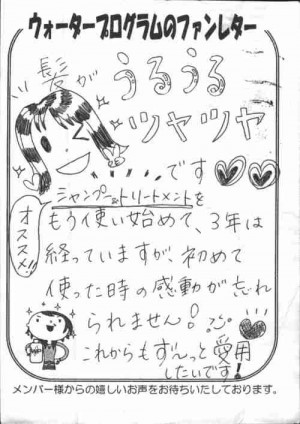 ウォータープログラムのファンレター
髪が
うるうる
ツヤツヤ
です
シャンプー&トリートメントを
オススメ!!
もう使い始めて、3年は
経っていますが、初めて
使った時の感動が忘れ
られません!
これからもずーっと愛用
したいです!
メンバー様からの嬉しいお声をお待ちいたしております。